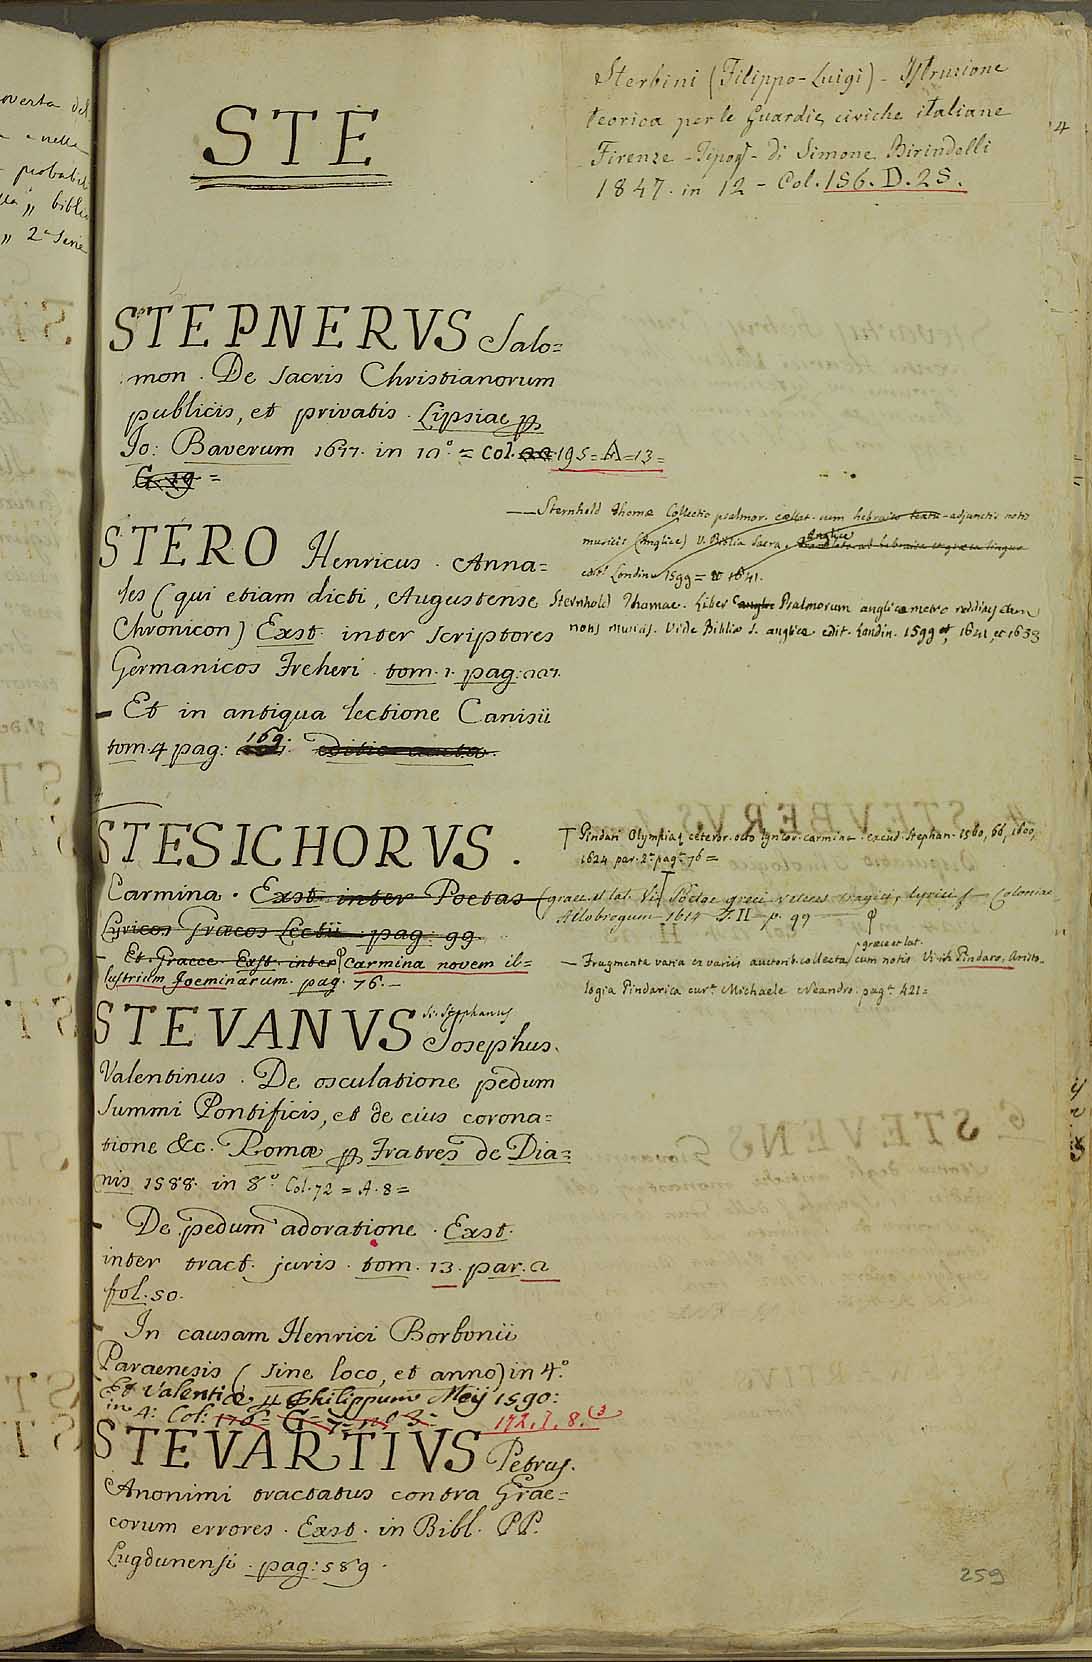 overta del
e nella
probabil
bibli
" 2ª Serie
STE
Sterbini (Filippo-Luigi) - Istruzione
teorica per le Guardie civiche italiane
Firenze - Tipogr. di Simone Birindelli
1847. in 12 - Col. 156. D. 25.
4
STEPNERVS Salo=
mon. De sacris Christianorum
publicis, et privatis. Lipsiae
Jo: Baverum 1677. in 12.° = Col. 195=A=13=
G. 19 =
STERO Henricus. Anna=
les (qui etiam dicti, Augustense
Chronicon) Exst. inter scriptores
Germanicos Freheri. tom. 1. pag:
Et in antiqua lectione Canisii
tom. 4 pag: 169. editio aucta.
Sternhold Thomæ Collectio psalmor. collat. cum hebraico textu adjunctis notis
musicis (Anglice) V. Biblia Sacra. Anglice
edit. Londin. 1599 = et 1641.
Sternhold Thomae. Liber Psalmorum anglico metro redditus cum
notis musicis. Vide Biblia S. anglica edit. Londin. 1599 et, 1641, et 1633
STESICHORVS.
Carmina. Exst. inter Poetas
Lyricos Græcos Lectii pag: 99.
Et. Graece. Exst. inter Carmina novem il=
lustrium foeminarum. pag. 76. -
Pindari Olympia, ceteror. octo lyricor. carmina. excud. Stephan. 1560, 66, 1600,
1624 par. 2ª pag. 76 =
(graec. et lat. Vid. Poetae graeci veteres tragici, lyrici Coloniae
Allobrogum 1614 T. II p. 99
graece et lat.
- Fragmenta varia ex variis auctorib. collecta cum notis. Vide Pindaro, Aristo=
logia Pindarica cur. Michaele Neandro. pag. 421=
STEVANVS Josephus.
Si. Stephanus
Valentinus. De osculatione pedum
Summi Pontificis, et de eius corona=
tione &c. Romæ Fratres de Dia=
nis 1588. in 8.° Col. 72 = A. 8 =
De pedum adoratione. Exst.
inter tract. juris. tom. 13. par. 2
fol. 50.
In causam Henrici Borbonii
Paraenesis (sine loco, et anno) in 4.°
Et Valentiæ Philippum Mey 1590:
in 4: Col: 172. I. 8. (3
STEVARTIVS Petrus.
Anonimi tractatus contra Grae=
corum errores. Exst. in Bibl. PP.
Lugdunensi. pag: 589.
259